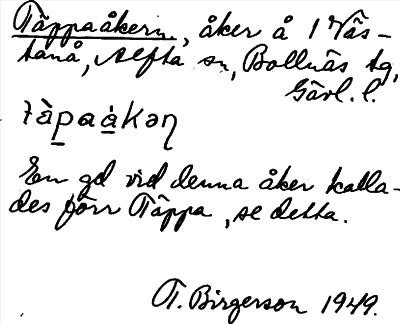 Täppaåkern, åker å 1 Väs-
tanå, Alfta sn, Bollnäs tg,
Gävl. l.
tàpaàkəɳ
En gd vid denna åker kalla-
des förr Täppa, se detta.
T. Birgerson 1949.